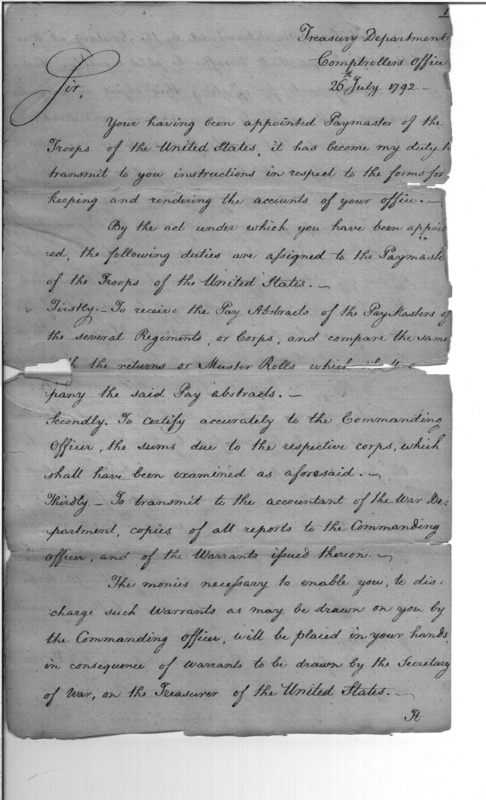 1
Treasury Department
Comptrollers Office
26th July 1792 –
Sir,
Your having been appointed Paymaster of the
Troops of the United States, it has become my duty t
transmit to you instructions in respect to the forms for
keeping and rendering the accounts of your office. –
By the act under which you have been appoin
red, the following duties are assigned to the Paymaste
of the Troops of the United States. –
Firstly. – To receive the Pay Abstracts of the PayMasters of
the several Regiments, or Corps, and compare the same
the returns or Muster Rolls which
pany the said Pay abstracts. –
Secondly. To certify accurately to the Commanding
Officer, the sums due to the respective corps, which
shall have been examined as aforesaid. –
Thirdly – To transmit to the accountant of the War De-
partment, copies of all reports to the Commanding
officer, and of the Warrants issued thereon. –
The monies necessary to enable you, to dis-
charge such Warrants as may be drawn on you by
the Commanding officer, will be placed in your hands,
in consequence of warrants to be drawn by the Secretary
of War, on the Treasurer of the United States. –